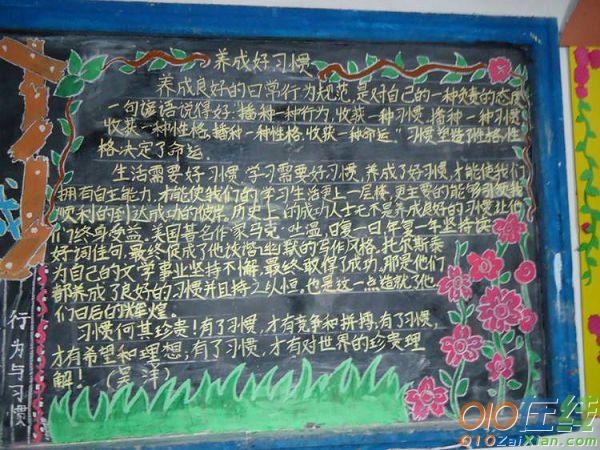 养成好习惯
养成良好的日常行为规范，是对自己的一种负责的态度
一句谚语说得好：“播种一种行为，收获一种习惯，播种一种习惯，
收获一种性格，播种一种性格，收获一种命运。”习惯塑造了性格，性
格决定了命运。
生活需要好习惯，学习需要好习惯，养成了好习惯，才能使我们
拥有自主能力，才能使我们的学习生活更上一层楼，更主要的能够引领我
顺利的到达成功的彼岸，历史上的成功人士无不是养成良好的习惯，让他
们终身受益，美国著名作家马克·吐温，日复一日年复一年坚持
好词佳句，最终促成了他诙谐幽默的写作风格，托尔斯泰
为自己的文学事业坚持不懈，最终取得了成功，那是他们
都养成了良好的习惯并且持之以恒，也是这一点造就了他
们日后的辉煌。
习惯何其珍贵！有了习惯，才有竞争和拼搏；有了习惯，
才有希望和理想；有了习惯，才有对世界的珍贵理
解！（吴洋）
行为与习惯
010在线
010zaixian.com